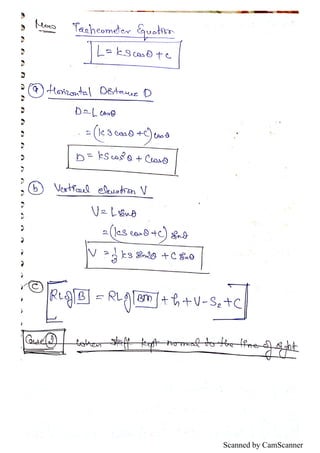 Tacheometer Equation
L = kS cosθ + c
(a) Horizontal Distance D
D = L cosθ
= (kS cosθ + C) cosθ
D = kS cos²θ + C cosθ
(b) Vertical elevation V
V = L Sinθ
= (kS cosθ + C) Sinθ
V = 1/2 kS Sin2θ + C Sinθ
(c) RL of B = RL of BM + h + V - S₂ + C
Case (2) when staff kept normal to the line of sight
Scanned by CamScanner